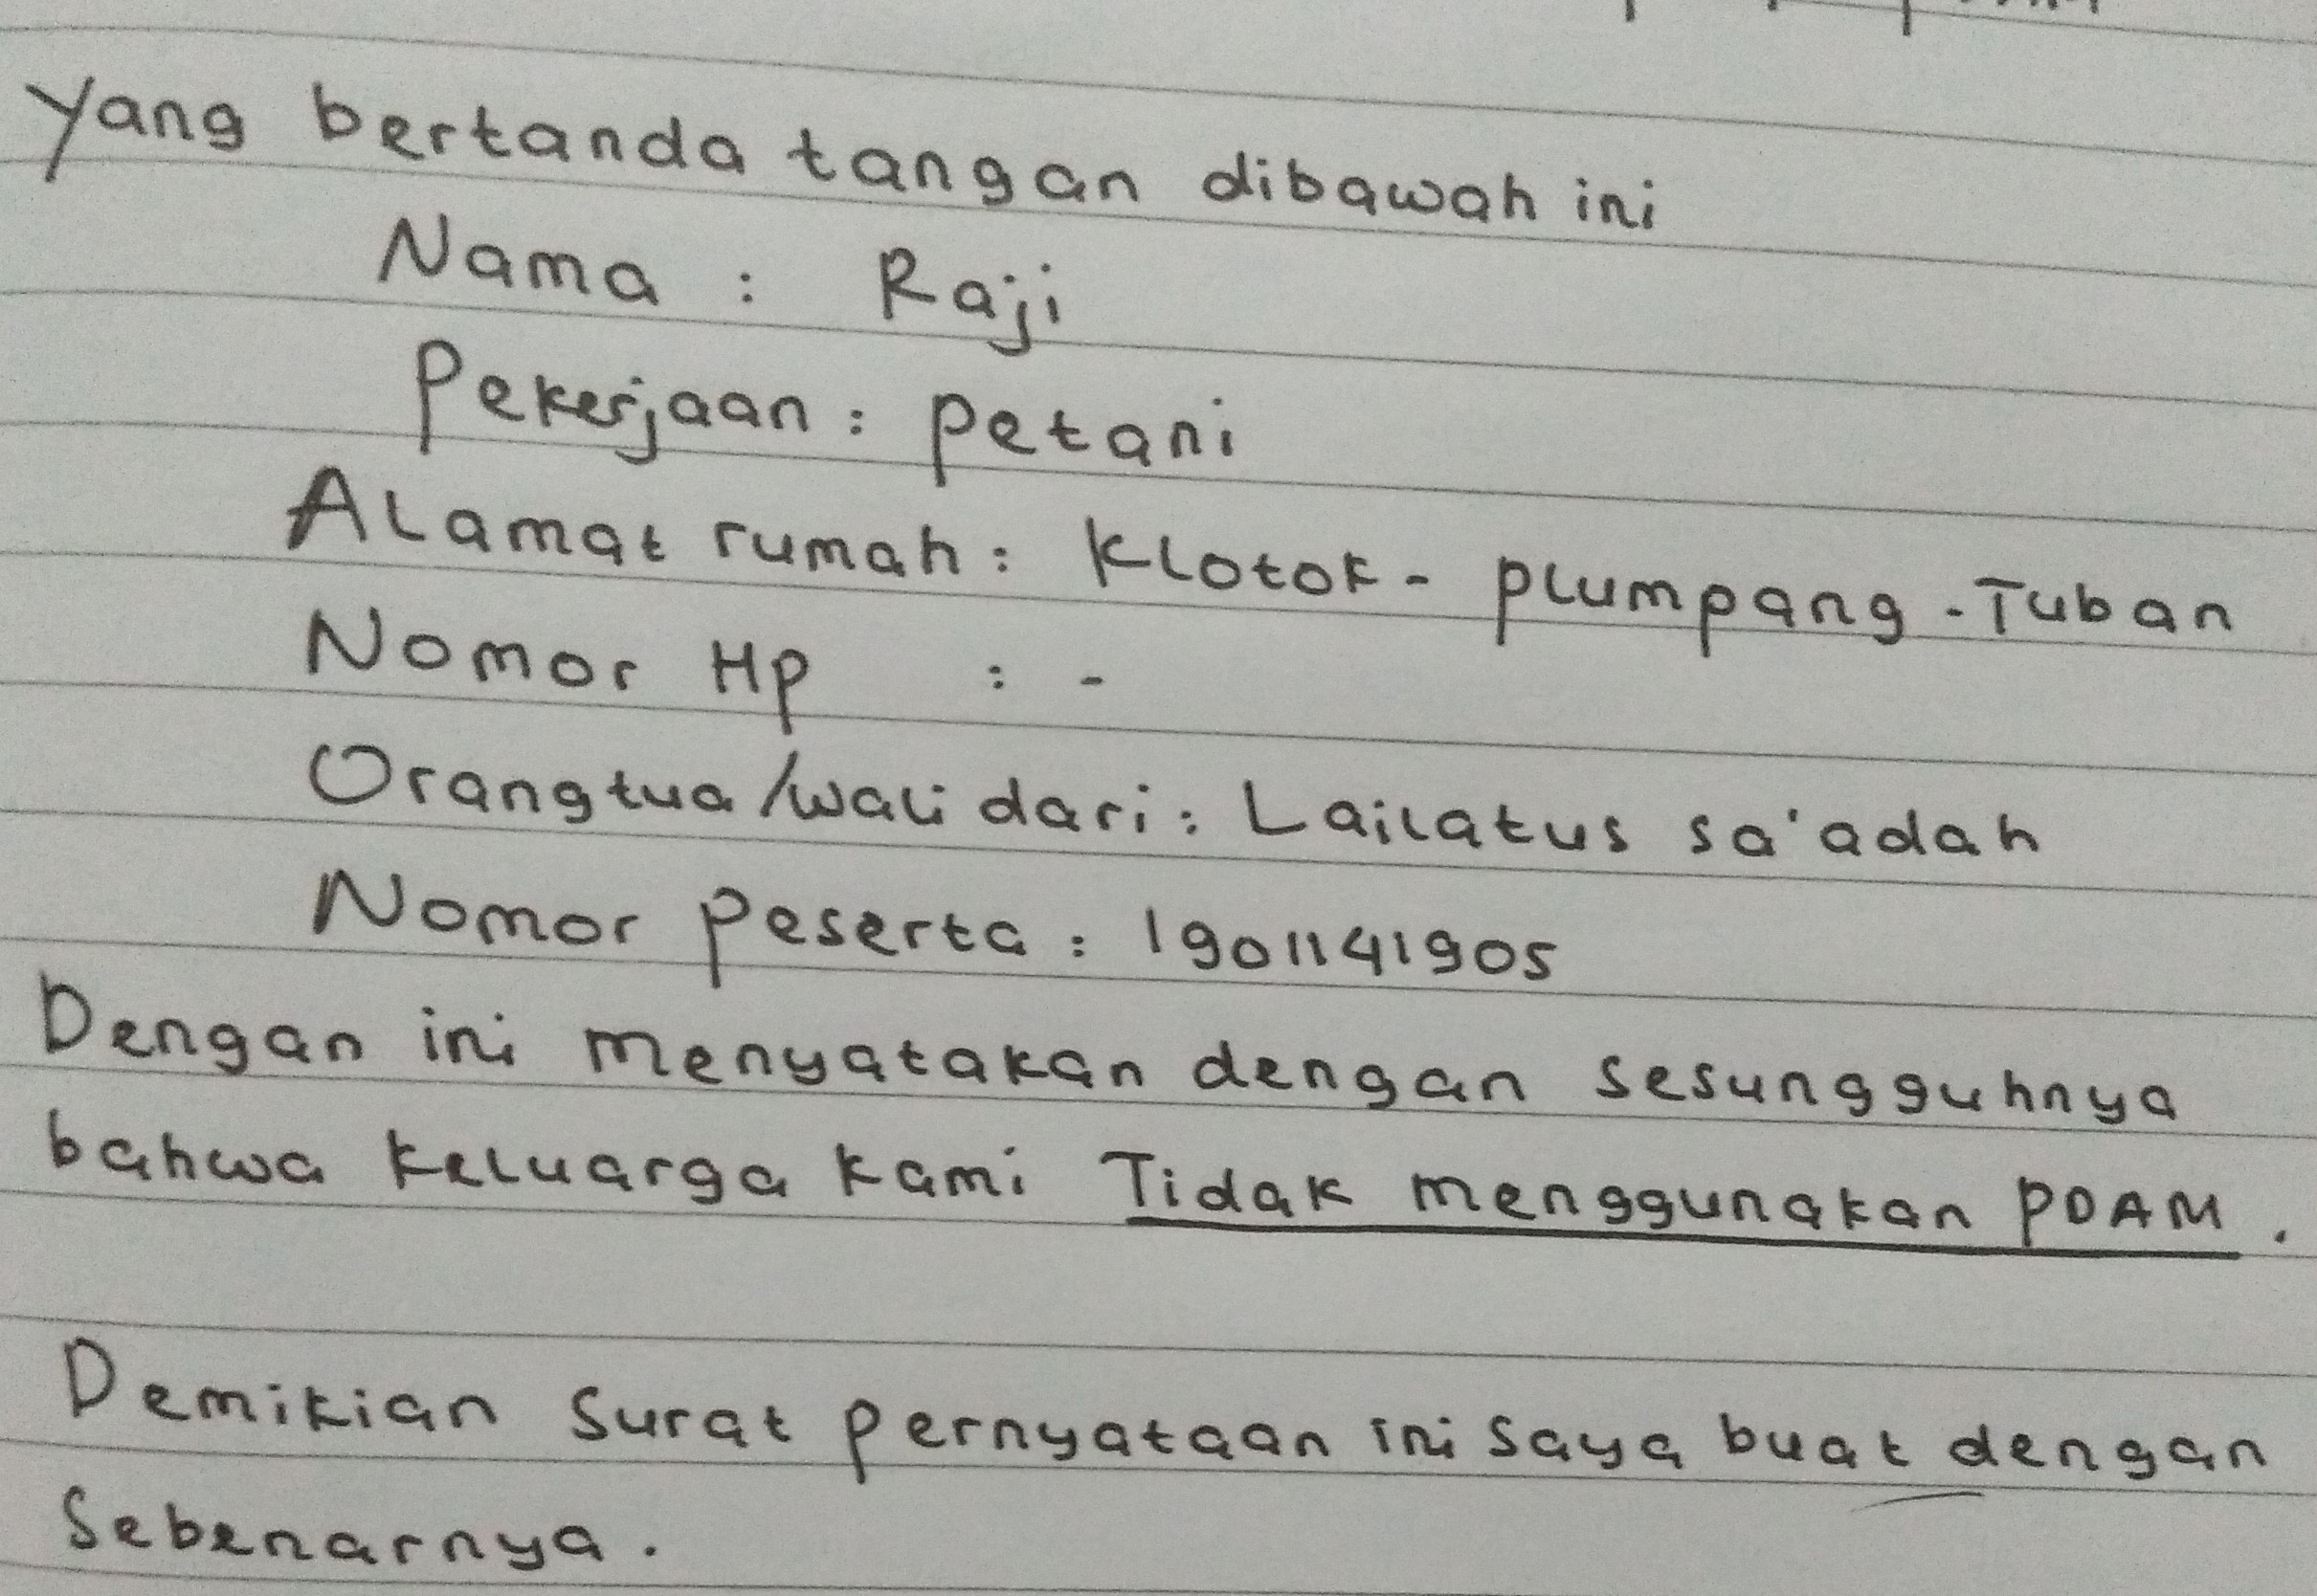 Yang bertanda tangan dibawah ini
Nama : Raji
Pekerjaan : petani
ALamat rumah : Klotok - plumpang - Tuban
Nomor Hp : -
Orangtua/wali dari : Lailatus sa'adah
Nomor peserta : 1901141905
Dengan ini menyatakan dengan sesungguhnya
bahwa keluarga kami Tidak menggunakan PDAM .
Demikian surat pernyataan ini saya buat dengan
Sebenarnya .